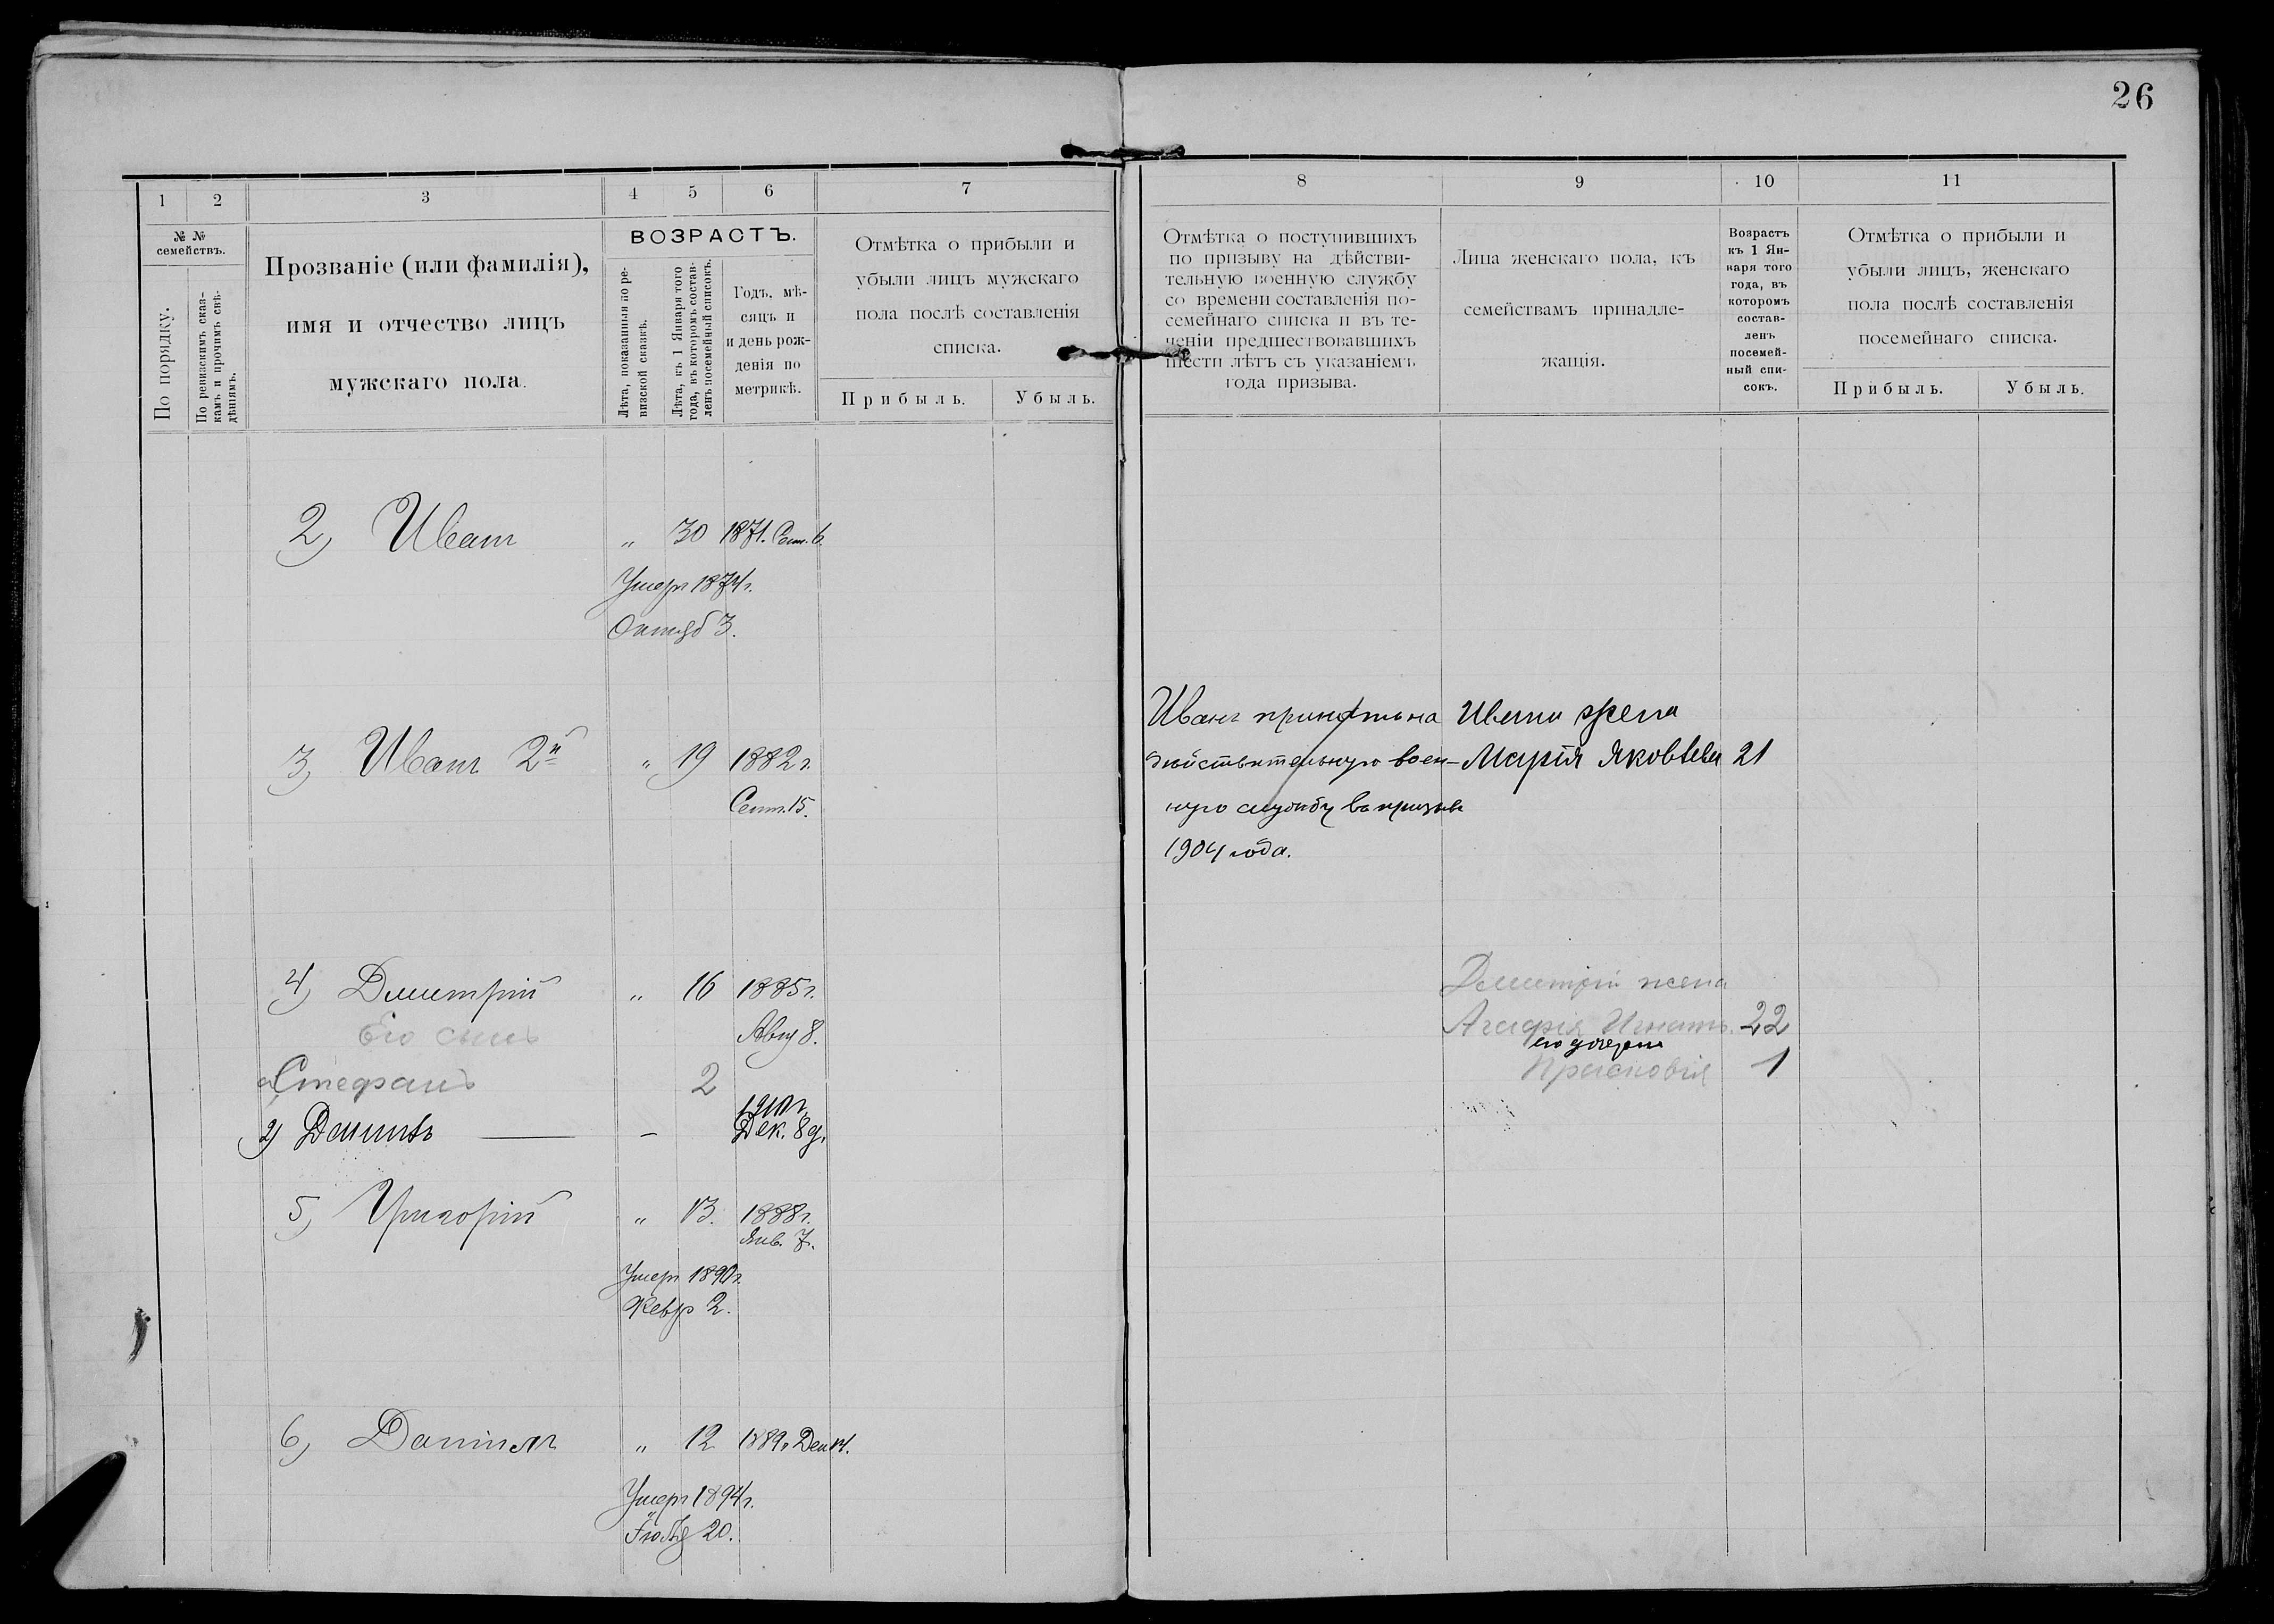 26
1
2
3
4
5
6
7
№ №
семействъ.
По порядку.
По ревизскимъ сказ-
камъ и прочимъ свѣ-
дѣніямъ.
Прозваніе (или фамилія),
имя и отчество лицъ
мужскаго пола.
ВОЗРАСТЪ.
Лѣта, показанныя по ре-
визской сказкѣ.
Лѣта, къ 1 Января того
года, въ которомъ состав-
ленъ посемейный списокъ.
Годъ, мѣ-
сяцъ и
и день рож-
денія по
метрикѣ.
Отмѣтка о прибыли и
убыли лицъ мужскаго
пола послѣ составленія
списка.
Прибыль.
Убыль.
2) Иванъ „ 30 1871. Сент. 6.
Умеръ 1874 г.
Октяб 3.
3) Иванъ 2й „ 19 1882 г.
Сент. 15.
4) Дмитрій „ 16 1885 г.
Его сынъ Авг 8.
Стефанъ 2
1910 г.
2) — Дек. 8 д.
5) Григорій „ 13. 1888 г.
Янв. 7.
Умеръ 1890 г.
Февр 2.
6) Даніилъ „ 12 1889 г. Дек 14.
Умеръ 1894 г.
Іюля 20.
8
9
10
11
Отмѣтка о поступившихъ
по призыву на дѣйстви-
тельную военную службу
со времени составленія по-
семейнаго списка и въ те-
ченіи предшествовавшихъ
шести лѣтъ съ указаніемъ
года призыва.
Лица женскаго пола, къ
семействамъ принадле-
жащія.
Возрастъ
къ 1 Ян-
варя того
года, въ
которомъ
состав-
ленъ
посемей-
ный спи-
сокъ.
Отмѣтка о прибыли и
убыли лицъ, женскаго
пола послѣ составленія
посемейнаго списка.
Прибыль.
Убыль.
Иванъ принятъ на
дѣйствительную воен-
ную службу въ призывъ
1904 года.
Ивана жена
Марія Яковлева 21
Дмитрія жена
Агафія Игнат. 22
его дочери
Прасковія 1